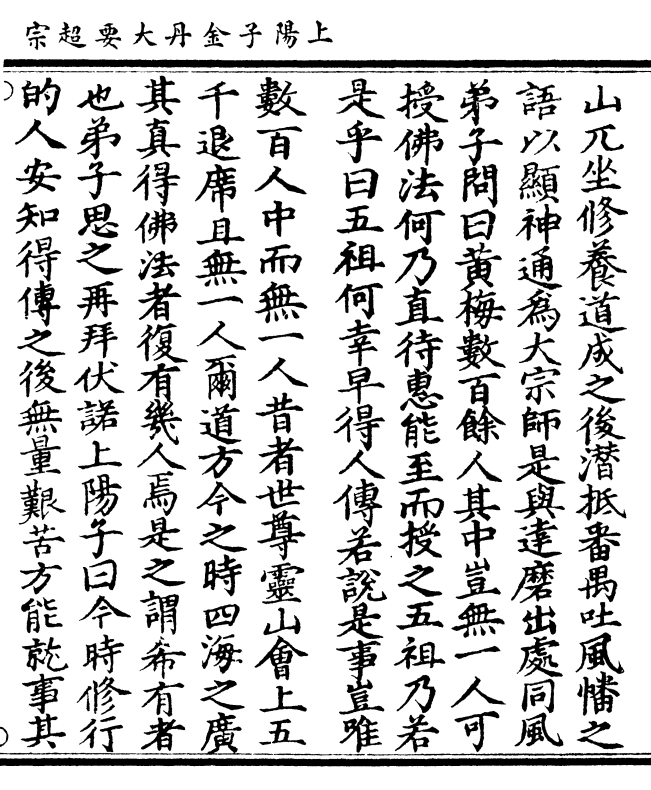 上陽子金丹大要超宗
山兀坐修養道成之後潛抵番禺吐風幡之
語以顯神通爲大宗師是與達磨出處同風
弟子問曰黃梅數百餘人其中豈無一人可
授佛法何乃直待惠能至而授之五祖乃若
是乎曰五祖何幸早得人傳若說是事豈唯
數百人中而無一人昔者世尊靈山會上五
千退席且無一人爾道方今之時四海之廣
其真得佛法者復有幾人焉是之謂希有者
也弟子思之再拜伏諾上陽子曰今時修行
的人安知得傳之後無量艱苦方能就事其